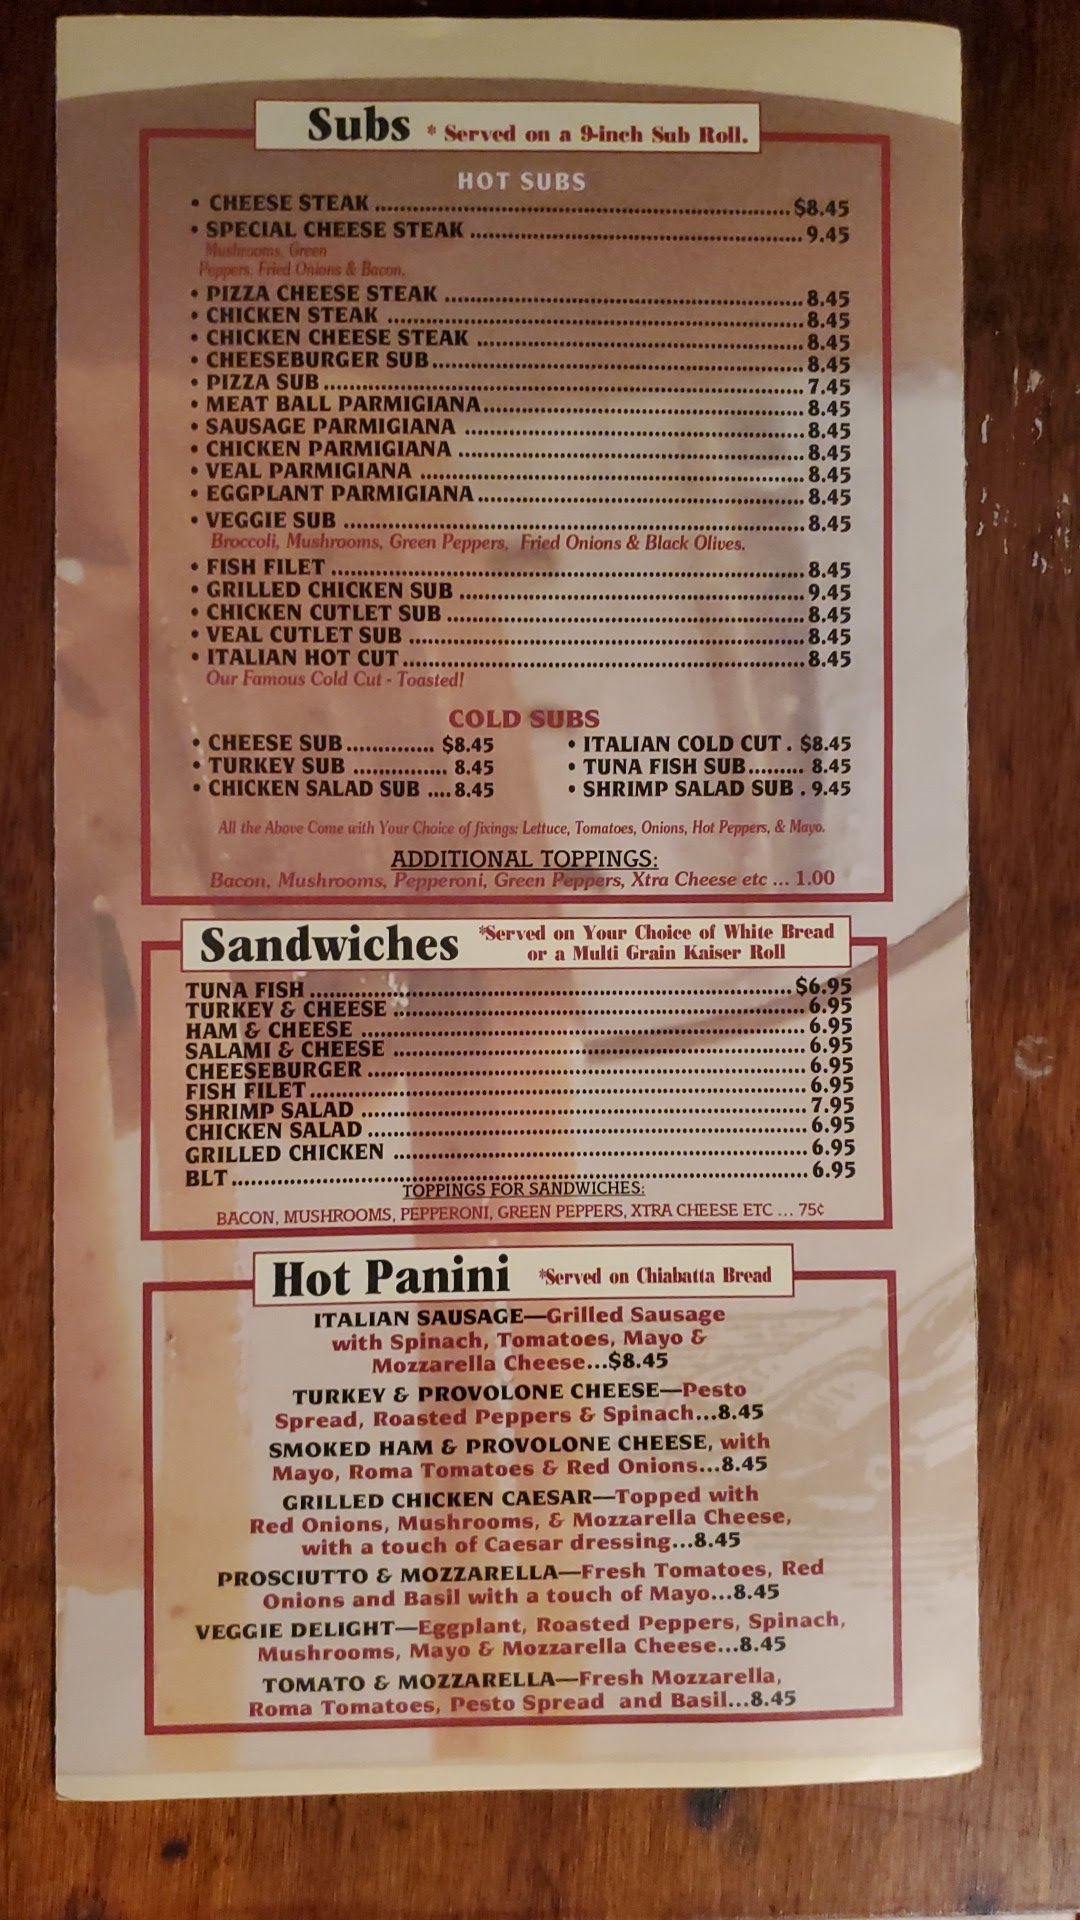 Subs * Served on a 9-inch Sub Roll.
HOT SUBS
• CHEESE STEAK ........ $8.45
• SPECIAL CHEESE STEAK ........ 9.45
Mushrooms, Green
Peppers, Fried Onions & Bacon,
• PIZZA CHEESE STEAK ........ 8.45
• CHICKEN STEAK ........ 8.45
• CHICKEN CHEESE STEAK ........ 8.45
• CHEESEBURGER SUB ........ 8.45
• PIZZA SUB ........ 7.45
• MEAT BALL PARMIGIANA ........ 8.45
• SAUSAGE PARMIGIANA ........ 8.45
• CHICKEN PARMIGIANA ........ 8.45
• VEAL PARMIGIANA ........ 8.45
• EGGPLANT PARMIGIANA ........ 8.45
• VEGGIE SUB ........ 8.45
Broccoli, Mushrooms, Green Peppers, Fried Onions & Black Olives.
• FISH FILET ........ 8.45
• GRILLED CHICKEN SUB ........ 9.45
• CHICKEN CUTLET SUB ........ 8.45
• VEAL CUTLET SUB ........ 8.45
• ITALIAN HOT CUT ........ 8.45
Our Famous Cold Cut - Toasted!
COLD SUBS
• CHEESE SUB .............. $8.45 • ITALIAN COLD CUT . $8.45
• TURKEY SUB ............... 8.45 • TUNA FISH SUB ......... 8.45
• CHICKEN SALAD SUB .... 8.45 • SHRIMP SALAD SUB . 9.45
All the Above Come with Your Choice of fixings: Lettuce, Tomatoes, Onions, Hot Peppers, & Mayo.
ADDITIONAL TOPPINGS:
Bacon, Mushrooms, Pepperoni, Green Peppers, Xtra Cheese etc ... 1.00
Sandwiches *Served on Your Choice of White Bread
or a Multi Grain Kaiser Roll
TUNA FISH ........ $6.95
TURKEY & CHEESE ........ 6.95
HAM & CHEESE ........ 6.95
SALAMI & CHEESE ........ 6.95
CHEESEBURGER ........ 6.95
FISH FILET ........ 6.95
SHRIMP SALAD ........ 7.95
CHICKEN SALAD ........ 6.95
GRILLED CHICKEN ........ 6.95
BLT ........ 6.95
TOPPINGS FOR SANDWICHES:
BACON, MUSHROOMS, PEPPERONI, GREEN PEPPERS, XTRA CHEESE ETC ... 75¢
Hot Panini *Served on Chiabatta Bread
ITALIAN SAUSAGE—Grilled Sausage
with Spinach, Tomatoes, Mayo &
Mozzarella Cheese...$8.45
TURKEY & PROVOLONE CHEESE—Pesto
Spread, Roasted Peppers & Spinach...8.45
SMOKED HAM & PROVOLONE CHEESE, with
Mayo, Roma Tomatoes & Red Onions...8.45
GRILLED CHICKEN CAESAR—Topped with
Red Onions, Mushrooms, & Mozzarella Cheese,
with a touch of Caesar dressing...8.45
PROSCIUTTO & MOZZARELLA—Fresh Tomatoes, Red
Onions and Basil with a touch of Mayo...8.45
VEGGIE DELIGHT—Eggplant, Roasted Peppers, Spinach,
Mushrooms, Mayo & Mozzarella Cheese...8.45
TOMATO & MOZZARELLA—Fresh Mozzarella,
Roma Tomatoes, Pesto Spread and Basil...8.45